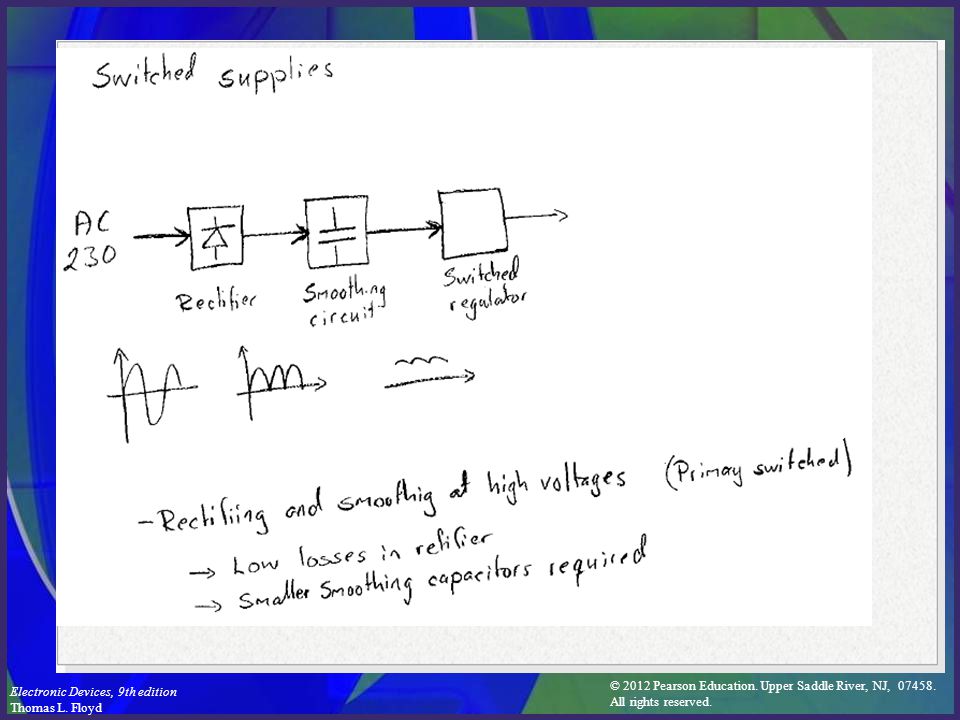 Switched supplies
AC
230
Rectifier
Smoothing
circuit
Switched
regulator
- Rectifiing and smoothig at high voltages (Primay switched)
→ Low losses in retifier
→ Smaller Smoothing capacitors required
Electronic Devices, 9th edition
Thomas L. Floyd
© 2012 Pearson Education. Upper Saddle River, NJ, 07458.
All rights reserved.